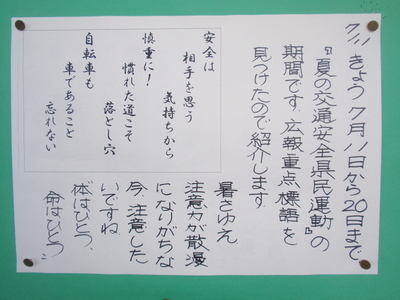 7/11 きょう7月11日から20日まで
『夏の交通安全県民運動』の
期間です。広報重点標語を
見つけたので紹介します。
安全は
相手を思う
気持ちから
慎重に!
慣れた道こそ
落とし穴
自転車も
車であること
忘れない
暑さゆえ
注意力が散漫
になりがちな
今、注意した
いですね
体はひとつ、
命はひとつ